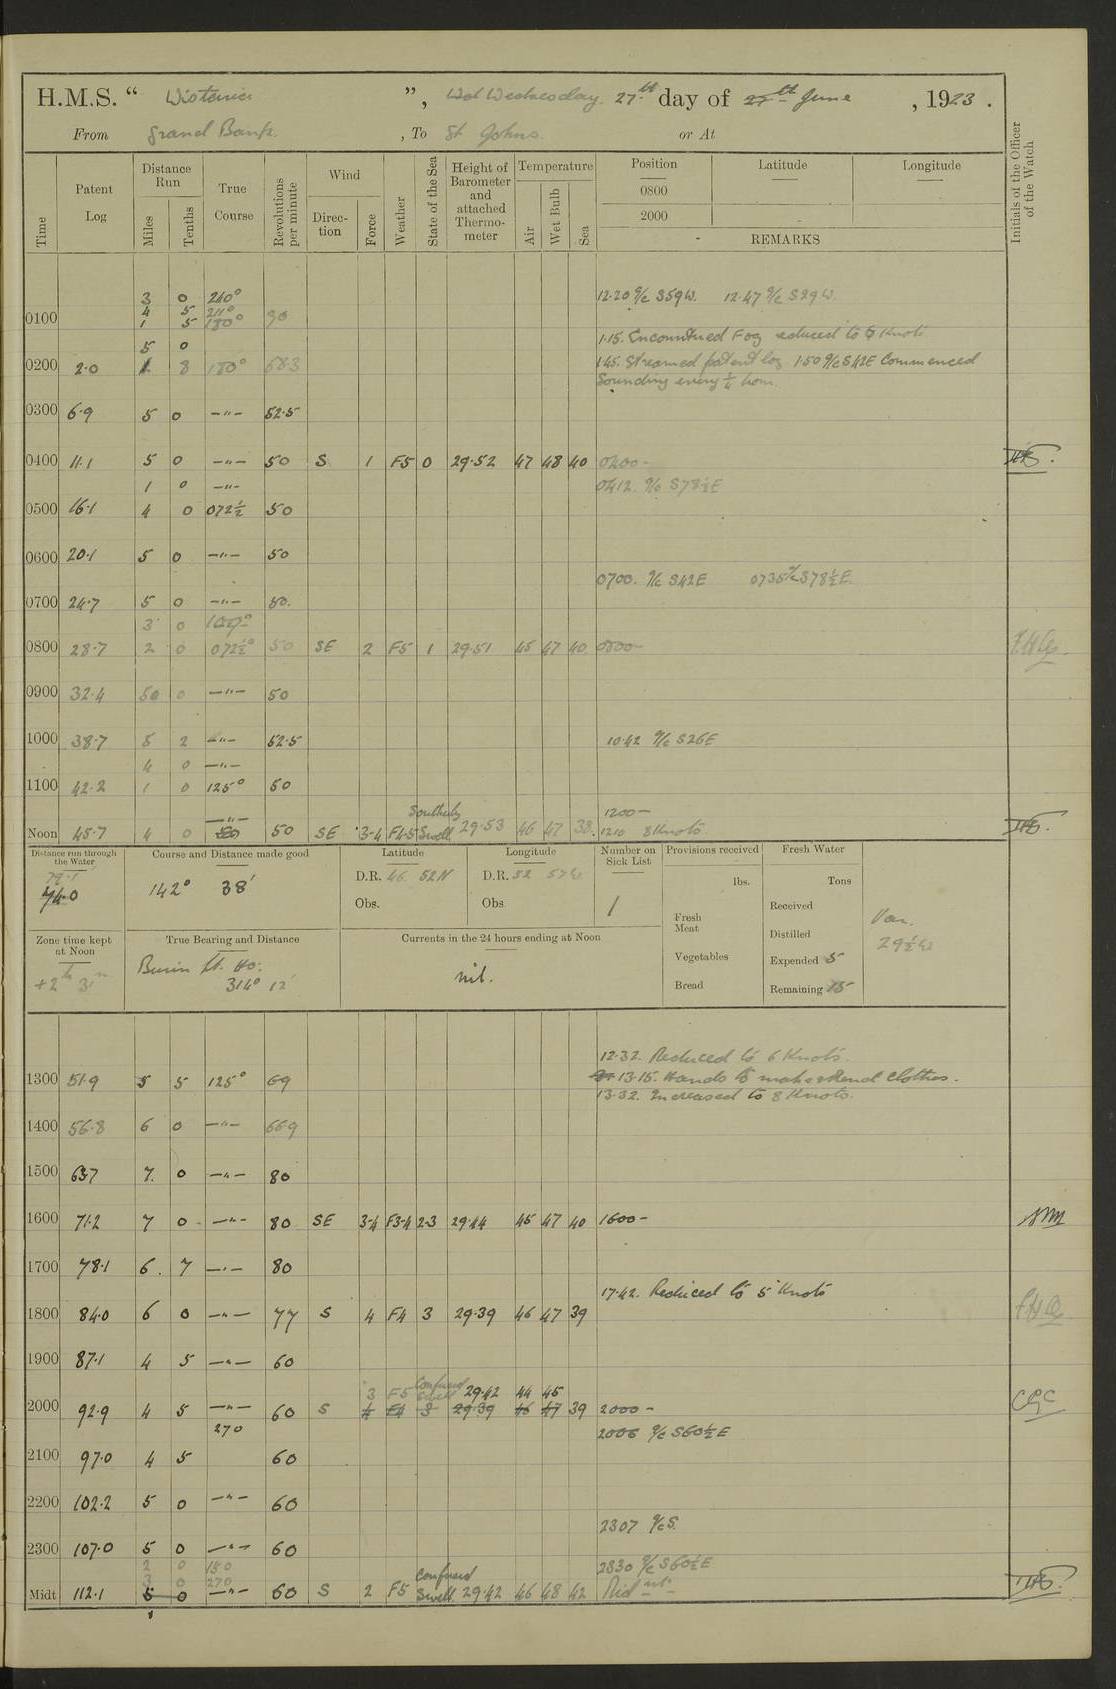 H.M.S. “ Wistaria ”, Wednesday 27th day of June, 1923.
From Grand Bank, To St Johns. or At
Time
Patent Log
Distance Run
Miles
Tenths
True Course
Revolutions per minute
Wind
Direction
Force
Weather
State of the Sea
Height of Barometer and attached Thermometer
Temperature
Air
Wet Bulb
Sea
Position
Latitude
Longitude
0800
2000
REMARKS
Initials of the Officer of the Watch
3 0 240° 12.20 a/c S59W. 12.47 a/c S29W.
4 5 211°
0100 1 5 180° 90
1.15. Encountered Fog reduced to 6 Knots
5 0
0200 2.0 1 8 180° 68.3 1.45. Streamed patent log 1.50 a/c S42E Commenced
Sounding every ¼ hour.
0300 6.9 5 0 —"— 52.5
0400 11.1 5 0 —"— 50 S 1 F5 0 29.52 47 48 40 0400-
1 0 —"— 0412. a/c S78½E
0500 16.1 4 0 072½ 50
0600 20.1 5 0 —"— 50
0700. a/c S42E 0735 a/c S78½E
0700 24.7 5 0 —"— 50.
3 0 109°
0800 28.7 2 0 072½° 50 SE 2 F5 1 29.51 45 47 40 0800-
0900 32.4 5 0 —"— 50
1000 38.7 5 2 —"— 52.5 10.42 a/c S26E
4 0 —"—
1100 42.2 1 0 125° 50
—"— Southerly 1200-
Noon 45.7 4 0 50 SE 3-4 F4-5 Swell 29.53 46 47 38. 1210 8 Knots
Distance run through the Water
Course and Distance made good
Latitude
Longitude
Number on Sick List
Provisions received
Fresh Water
79.1
74.0
142° 38'
D.R. 46 52N
D.R. 52 57W
Obs.
Obs
1
lbs.
Tons
Fresh Meat
Vegetables
Bread
Received
Distilled
Expended 5
Remaining 15
Var. 29½W
Zone time kept at Noon
+2h 31m
True Bearing and Distance
Burin Lt. Ho.
314° 12'
Currents in the 24 hours ending at Noon
nil.
12.32. Reduced to 6 Knots.
1300 51.9 5 5 125° 69 13.15. Hands to make & mend clothes.
13.32. Increased to 8 Knots.
1400 56.8 6 0 —"— 66.9
1500 63.7 7. 0 —"— 80
1600 71.2 7 0 —"— 80 SE 3-4 F3-4 2-3 29.44 45 47 40 1600-
1700 78.1 6. 7 —"— 80
17.42. Reduced to 5 Knots
1800 84.0 6 0 —"— 77 S 4 F4 3 29.39 46 47 39
1900 87.1 4 5 —"— 60
3 F5 Confused Swell 29.42 44 45
2000 92.9 4 5 —"— 60 S 4 F4 3 29.39 46 47 39 2000-
270 2006 a/c S60½E
2100 97.0 4 5 60
2200 102.2 5 0 —"— 60
2307 a/c S.
2300 107.0 5 0 —"— 60
2 0 150 2330 a/c S60½E
3 0 270 Confused
Midt 112.1 5 0 —"— 60 S 2 F5 Swell 29.42 46 48 42 Midnt-